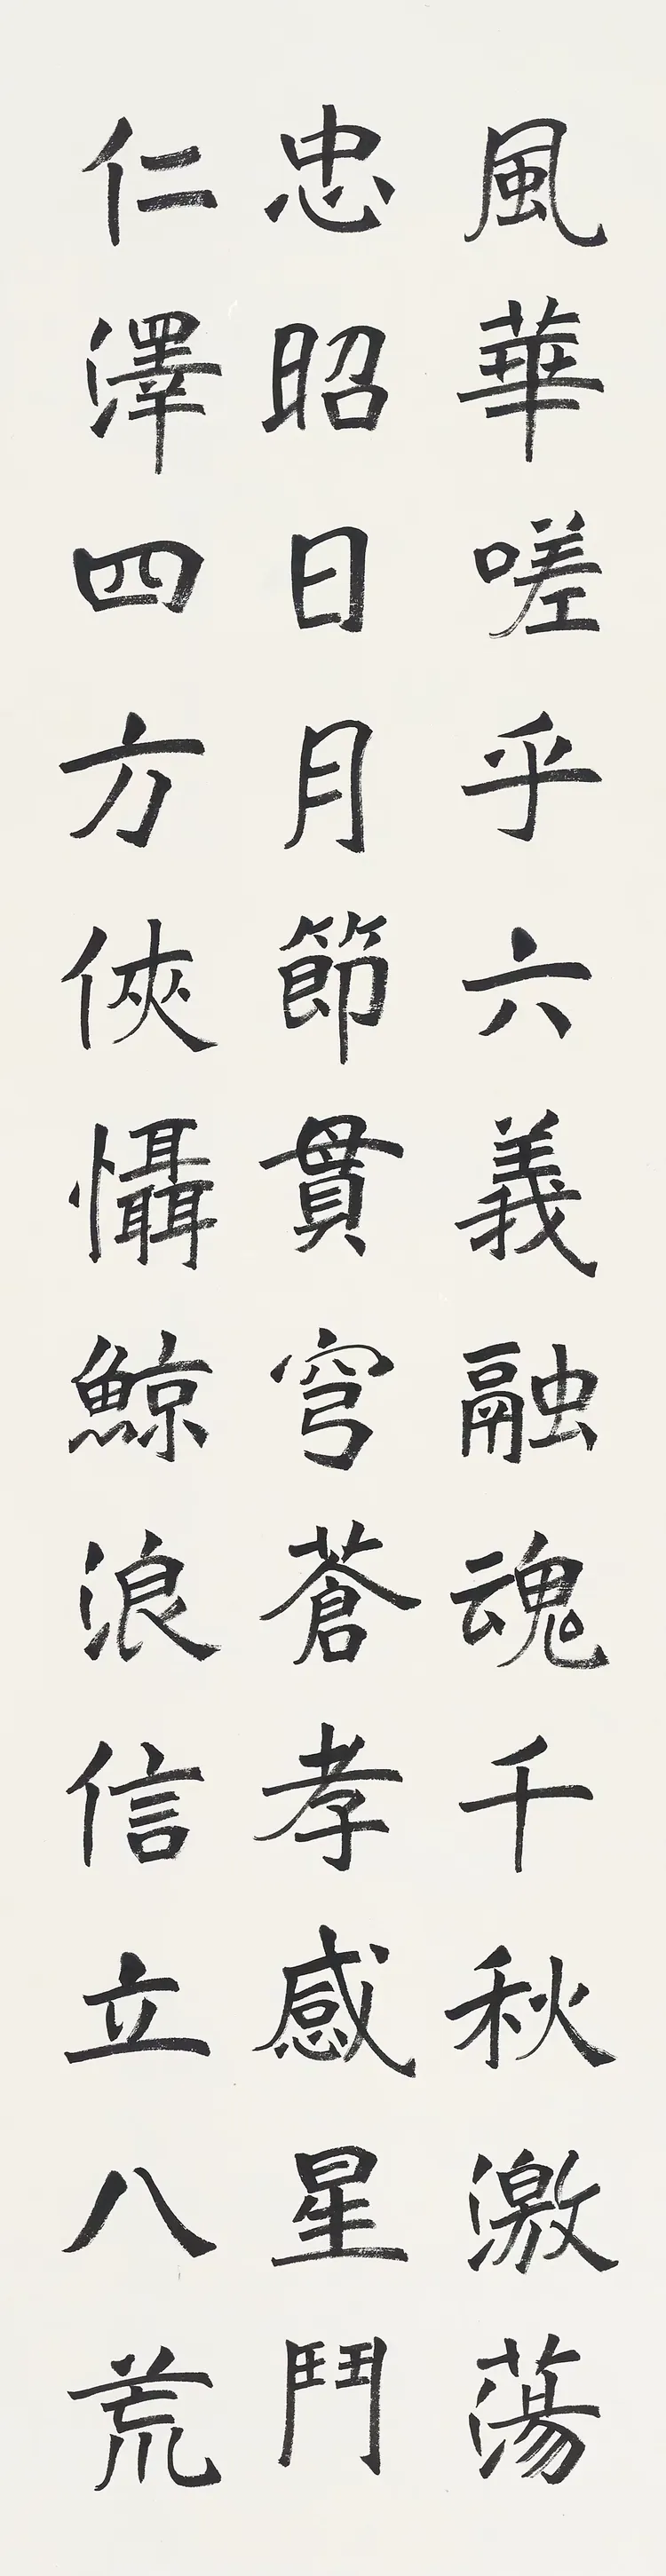 風華嗟乎六義融魂千秋激蕩
忠昭日月節貫穹蒼孝感星鬥
仁澤四方俠懾鯨浪信立八荒